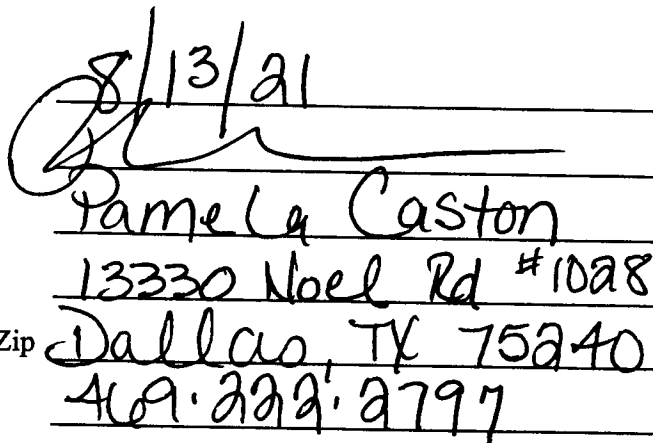 8/13/21
Pamela Caston
13330 Noel Rd #1028
Zip Dallas, TX 75240
469.222.2797